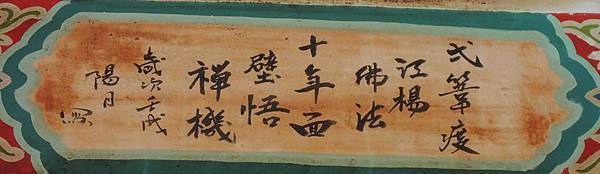 弌葦渡
江楊
佛法
十年面
壁悟
禪機
歲次壬戌
陽月